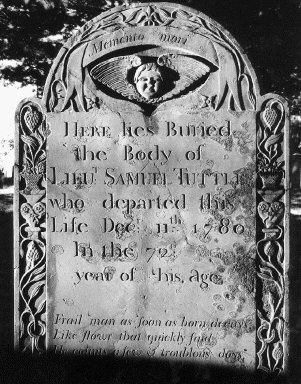 Memento mori
HERE lies Buried
the Body of
LIEUT SAMUEL TUTTLE
who departed this
Life Dec. 11th 1780
In the 72d
year of his age
Frail man as soon as born decays
Like flowr that quickly fade
He counts a few & troublous days